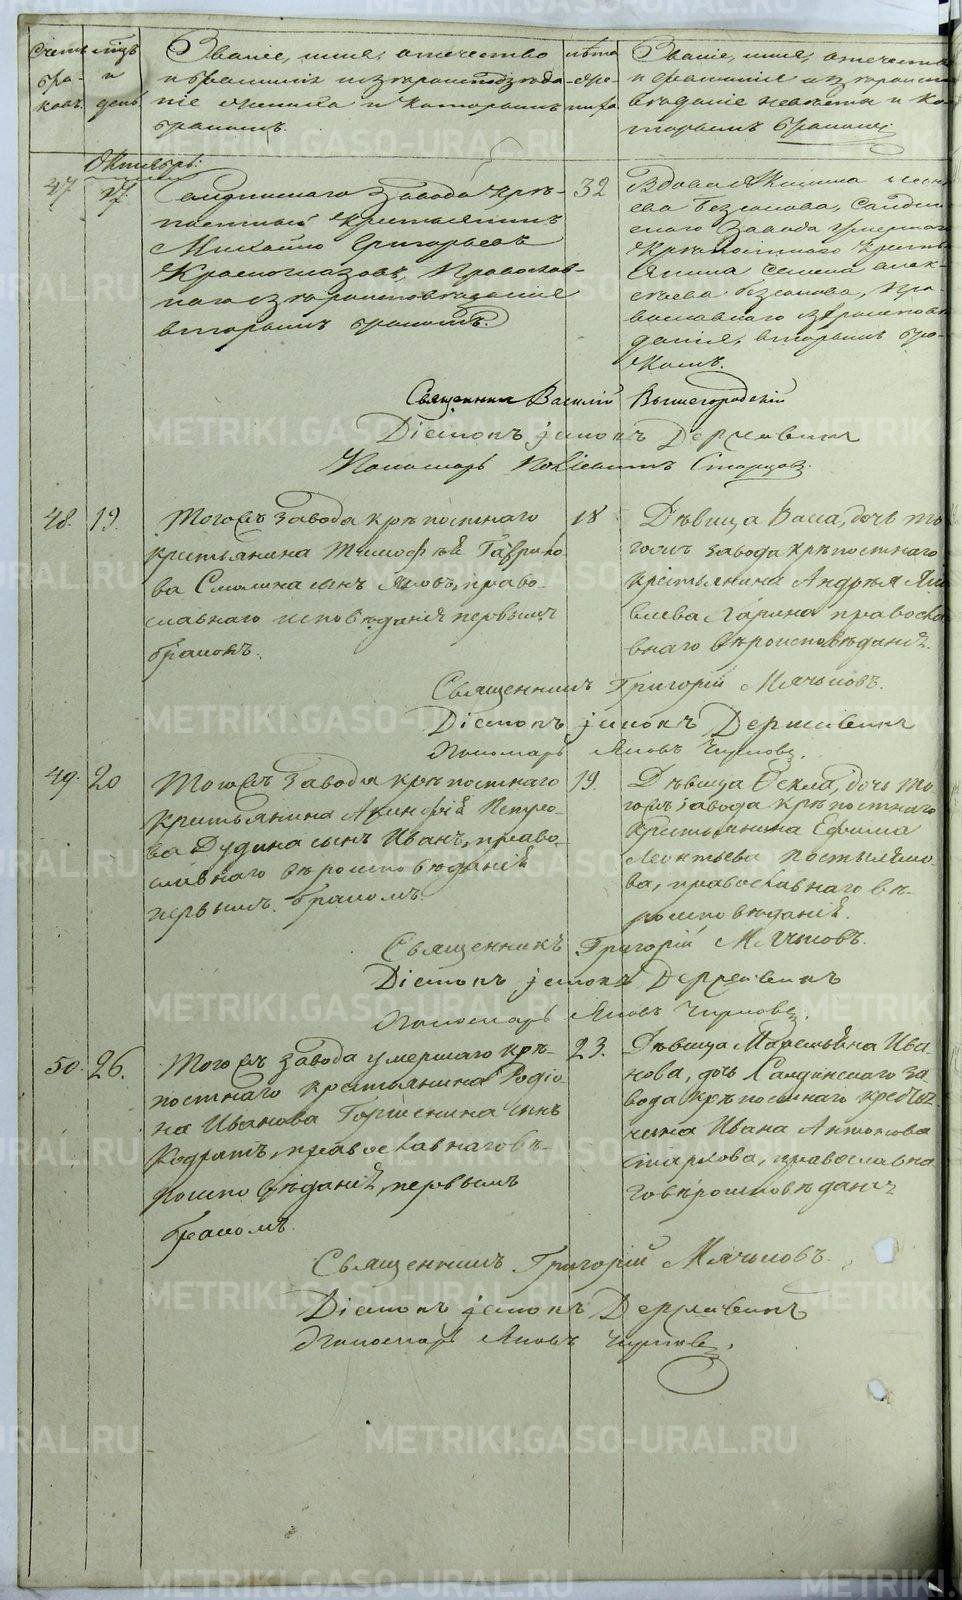 Счетъ бра- ковъ.
Мѣсяцъ и день
Званіе, имя, отечество
и фамилія и вѣроисповѣда
ніе жениха и которымъ
бракомъ.
Лѣта жениха
Званіе, имя, отечество
и фамилія и вѣроиспо
вѣданіе невѣсты и ко
торымъ бракомъ
Октябрь:
47
17
Салдинскаго завода крѣ-
постный крестьянинъ
Михайло Григорьевъ
Красноглазовъ, Православ-
наго вѣроисповѣданія
вторымъ бракомъ.
32
Вдова Акилина
ева Безсонова, Салдин
скаго завода умершаго
крѣпостнаго кресть
янина Семена Алек
сѣева Безсонова, пра
вославнаго вѣроисповѣ
данія, вторымъ бра-
комъ.
Священникъ Василій Вышегородскій
Діаконъ Іаковъ Державинъ
Пономарь Старцовъ.
48.
19.
Тогожъ завода крѣпостнаго
крестьянина Тимофѣя Гаврило
ва Смолина сынъ Яковъ, право
славнаго исповѣданія первымъ
бракомъ.
18
Дѣвица Васса, дочь то
гожъ завода крѣпостнаго
крестьянина Андрея Яко
влева Ларина правосла
внаго вѣроисповѣданія.
Священникъ Григорій Мячковъ.
Діаконъ Іаковъ Державинъ
Пономарь Яковъ Чирковъ.
49.
20
Тогожъ завода крѣпостнаго
крестьянина Акинфія Петро-
ва Дудина сынъ Иванъ, право-
славнаго вѣроисповѣданія
первымъ бракомъ.
19.
Дѣвица Ѳекла, дочь то
гожъ завода крѣпостнаго
крестьянина Ефима
Леонтьева
ва, православнаго вѣ-
роисповѣданія.
Священникъ Григорій Мячковъ.
Діаконъ Іаковъ Державинъ
Пономарь Яковъ Чирковъ.
50.
26.
Тогожъ завода умершаго крѣ-
постнаго крестьянина Родіо
на Иванова Горшенина сынъ
Кодратъ, православнаго вѣ-
роисповѣданія, первымъ
бракомъ.
23.
Дѣвица Маремьяна Ива
нова, дочь Салдинскаго за
вода крѣпостнаго крестья
нина Ивана Антонова
Старкова, православна
го вѣроисповѣданія
Священникъ Григорій Мячковъ.
Діаконъ Іаковъ Державинъ
Пономарь Яковъ Чирковъ.
METRIKI.GASO-URAL.RU